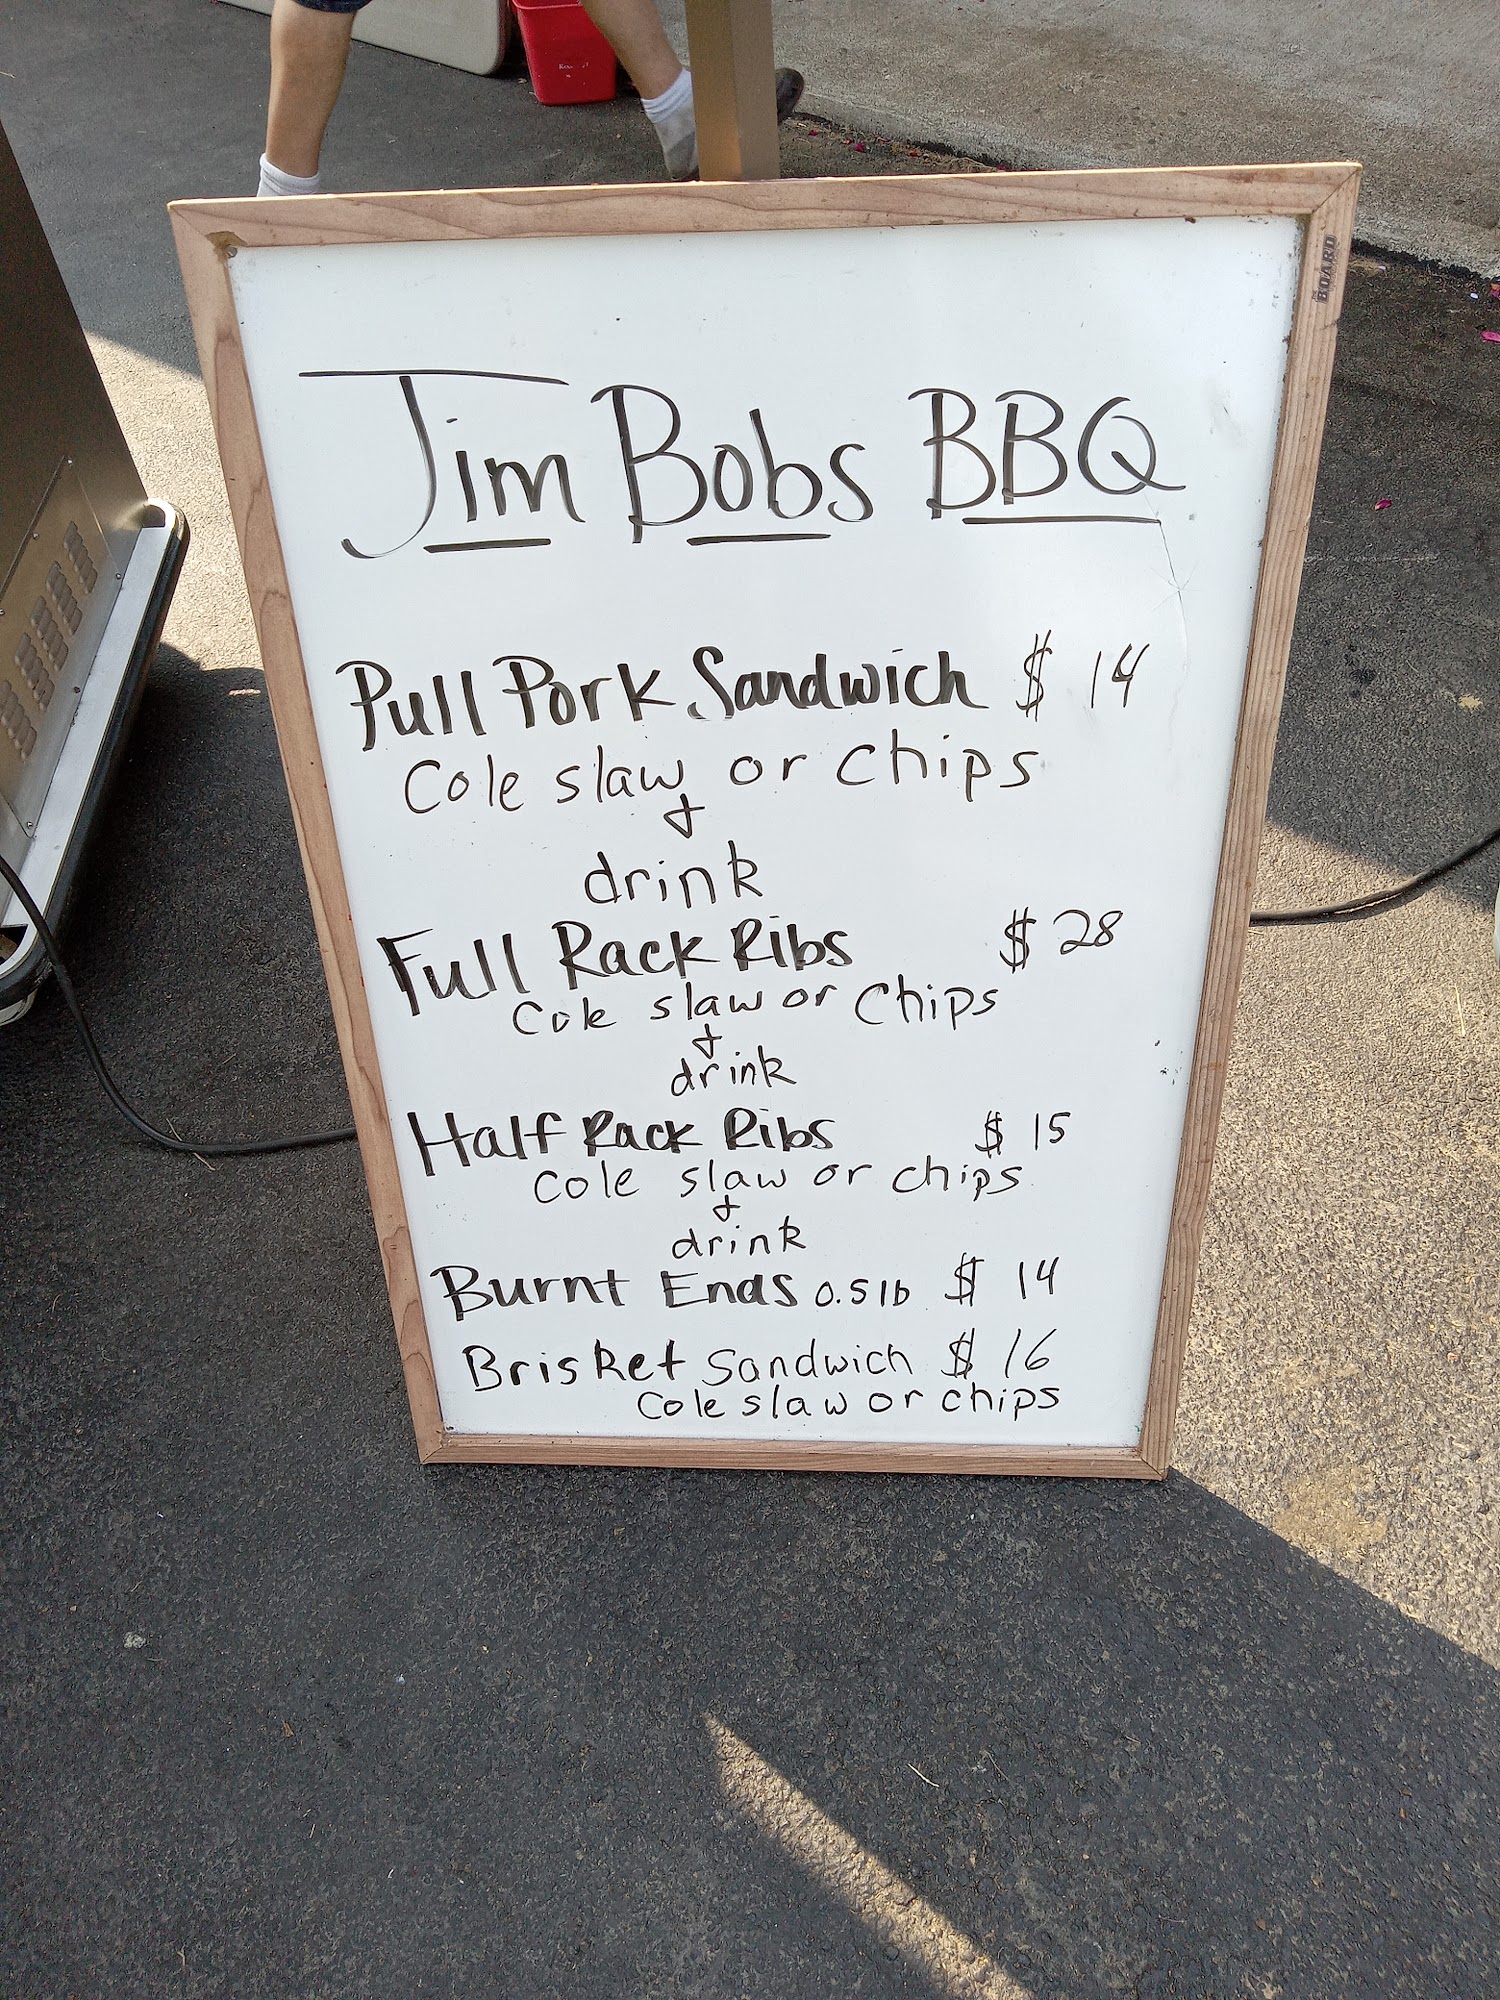 BOARD
Jim Bobs BBQ
Pull Pork Sandwich $ 14
Cole slaw or chips
&
drink
Full Rack Ribs $ 28
Cole slaw or chips
&
drink
Half Rack Ribs $ 15
Cole slaw or chips
&
drink
Burnt Ends 0.5 lb $ 14
Brisket Sandwich $ 16
Cole slaw or chips